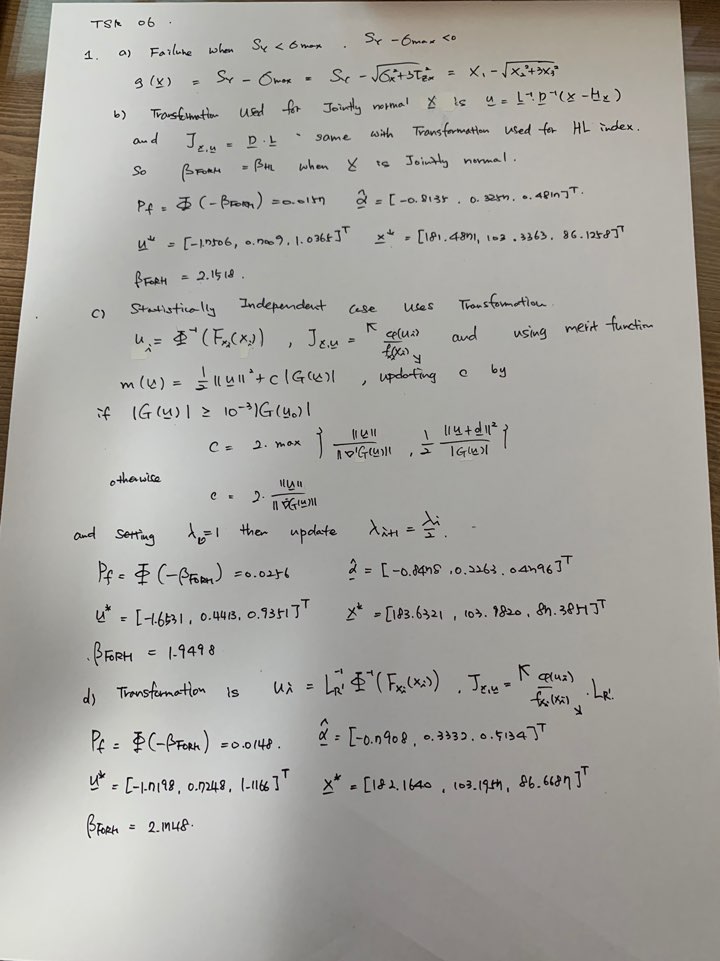 TSR 06.
1. a) Failure when Sγ < σmax . Sγ - σmax < 0
g(x) = Sγ - σmax = Sγ - √(σx² + 3τzx²) = X₁ - √(X₂² + 3X₃²)
b) Transformation used for Jointly normal X is u = L⁻¹·D⁻¹(X - Mx)
and Jz,u = D·L same with Transformation used for HL index.
So βFORM = βHL when X is Jointly normal.
Pf = Φ(-βFORM) = 0.0157 α̂ = [-0.8135, 0.3257, 0.4817]ᵀ
u* = [-1.7506, 0.7009, 1.0365]ᵀ x* = [181.4871, 103.3363, 86.1258]ᵀ
βFORM = 2.1518.
c) Statistically Independent case uses Transformation
uᵢ = Φ⁻¹(Fxᵢ(xᵢ)), Jz,u = [φ(uᵢ)/f(xᵢ)] and using merit function
m(u) = ½‖u‖² + c|G(u)|, updating c by
if |G(u)| ≥ 10⁻³|G(u₀)|
c = 2·max { ‖u‖/‖∇G(u)‖, ½ ‖u+d‖²/|G(u)| }
otherwise
c = 2·‖u‖/‖∇G(u)‖
and setting λ₀=1 then update λᵢ₊₁ = λᵢ/2.
Pf = Φ(-βFORM) = 0.0256 α̂ = [-0.8478, 0.2263, 0.4796]ᵀ
u* = [-1.6531, 0.4413, 0.9351]ᵀ x* = [183.6321, 103.9820, 87.3857]ᵀ
βFORM = 1.9498
d) Transformation is uᵢ = L⁻¹R' Φ⁻¹(Fxᵢ(xᵢ)), Jz,u = [φ(uᵢ)/fxᵢ(xᵢ)]·LR'
Pf = Φ(-βFORM) = 0.0148. α̂ = [-0.7908, 0.3332, 0.5134]ᵀ
u* = [-1.7198, 0.7248, 1.1166]ᵀ x* = [182.1640, 103.1957, 86.6687]ᵀ
βFORM = 2.1748.